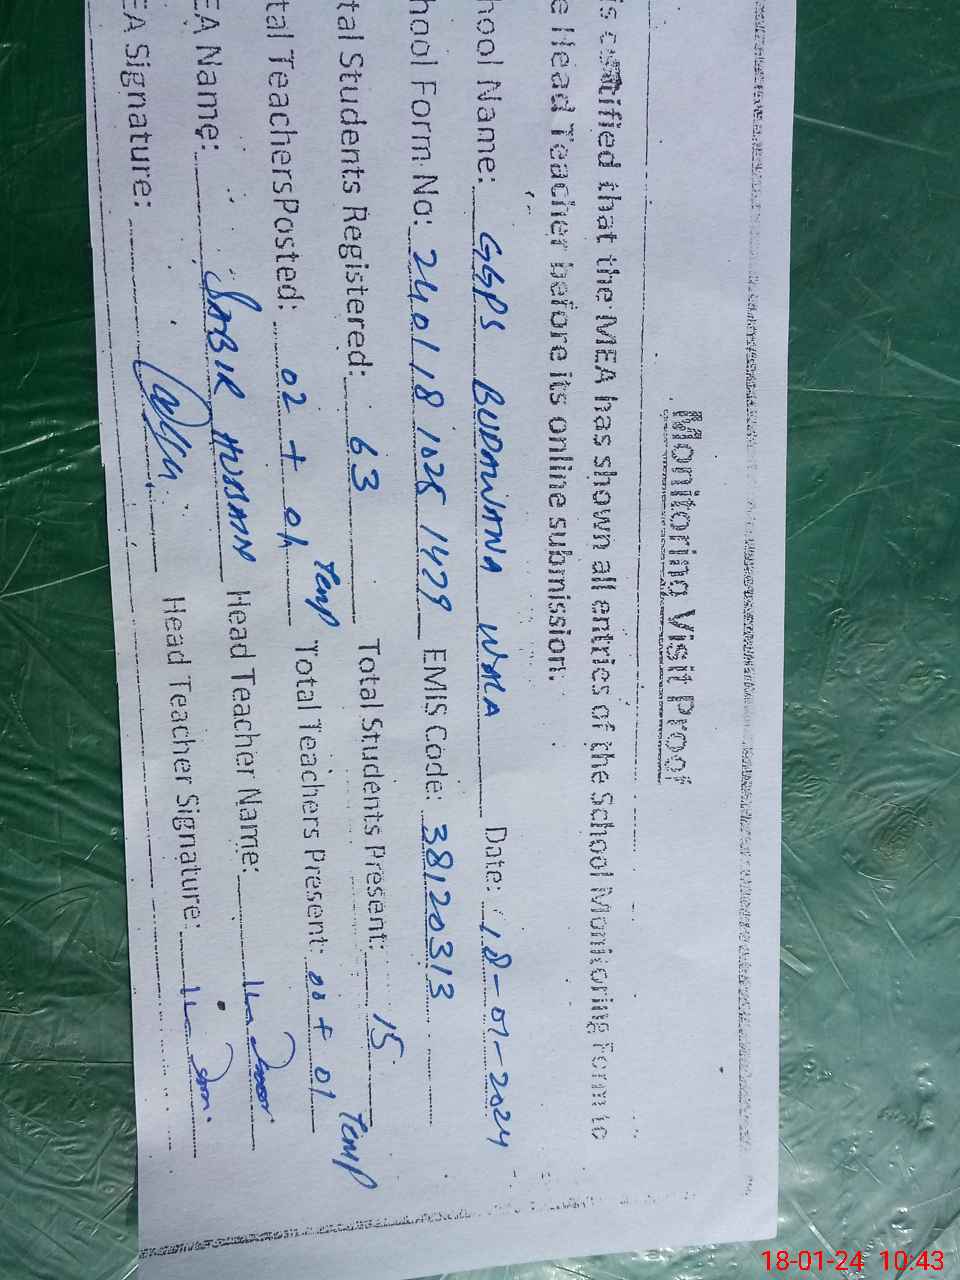 Monitoring Visit Proof
is certified that the MEA has shown all entries of the School Monitoring Form to
e Head Teacher before its online submission.
hool Name: GGPS BUDAWANA WALA Date: 18-01-2024
hool Form No: 2401181028 1429 EMIS Code: 38120313
tal Students Registered: 63 Total Students Present: 15
tal Teachers Posted: 02 + 01 Temp Total Teachers Present: 00 + 01 Temp
EA Name: SABIR HUSSAIN Head Teacher Name:
EA Signature: Head Teacher Signature:
18-01-24 10:43